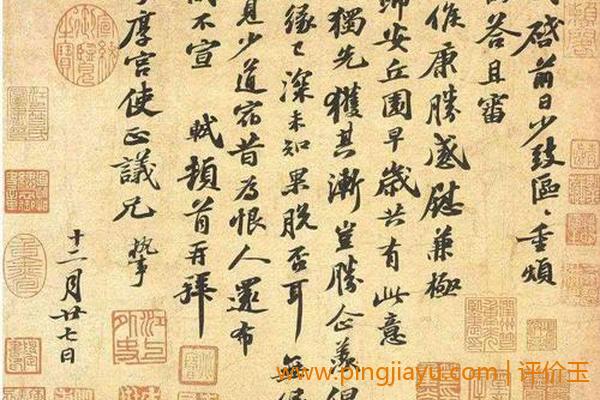 啟前日少致區〻重煩
答且審
候康勝感慰兼極
歸安丘園早歲共有此意
獨先獲其漸豈勝企羨但
緣已深未知果脫否耳無緣
見少道宿昔為恨人還布
不宣 軾頓首再拜
厚宮使正議兄執事
十二月廿七日
www.pingjiayu.com | 评价玉